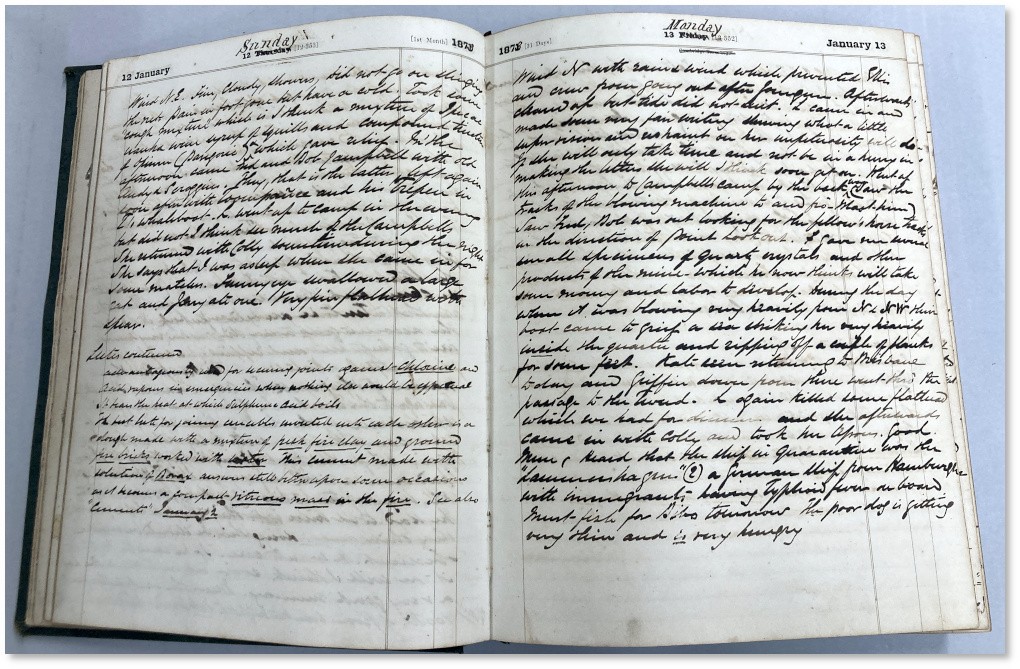 Sunday
12 January
12 Thursday [12-353]
[1st Month] 1873
Wind N.E. Fine, cloudy, showers, did not go on slinging
the nest. Pain in foot gone but have a cold. Took some
"cough mixture" which is I think a mixture of Ipecac
wanha wine syrup of squills and compound tincture
of Opium (Paregoric) which gave relief. In the
afternoon came Fred and Bob Campbell with old
Andy Scroggins. They, that is the latter left again
with and his in
the whaleboat. L. went up to camp in the evening
but did not I think see much of the Campbells
She returned with Colly sometime during the night
She says that I was asleep when she came in for
some matches. swallowed a large
rat and ate one. Very fine flathead with
spear.
Lutes continued
advantageously used for securing joints against Chlorine and
acid vapours in emergencies when nothing else would be appropriate
It bears the heat at which Sulphuric acid boils
The best lute for joining crucibles inverted into each other is a
dough made with a mixture of fresh fire clay and ground
fire bricks worked with water. This cement made with
solution of Borax answers still better upon some occasions
as it becomes a compact vitreous mass in the fire. See also
"Cement" January 2
Monday
1873 [31 Days]
13 Friday [13-352]
January 13
Wind N with rain & wind which prevented this
and crew from going out after Afterwards
cleared up but tide did not suit. L. came in and
made some very fair writing shewing what a little
supervision and restraint on her impetuosity will do.
If she will only take time and not be in a hurry in
making the letters she will I think soon get on. Went up
this afternoon to Campbells camp by the back. Saw the
tracks of the mowing machine to and from
Saw Fred, Bob was out looking for the fellows horse
in the direction of Point Lookout. I gave me several
small specimens of quartz crystals and other
products of the mine which he now thinks will take
some money and labor to develop. During the day
when it was blowing very heavily from N & NW their
boat came to grief a sea striking her very heavily
inside the quarter and ripping off a couple of planks
for some feet. Kate seen returning to Brisbane
to day and Griffin down from there went thro' the
passage to the Tweed. L. again killed some flathead
which we had for dinner and she afterwards
came in with Colly and took her lesson. Good.
Mem, Heard that the ship in quarantine was the
(?) a German ship from Hamburgh
with immigrants having Typhoid fever on board
Must fish for tomorrow the poor dog is getting
very thin and is very hungry